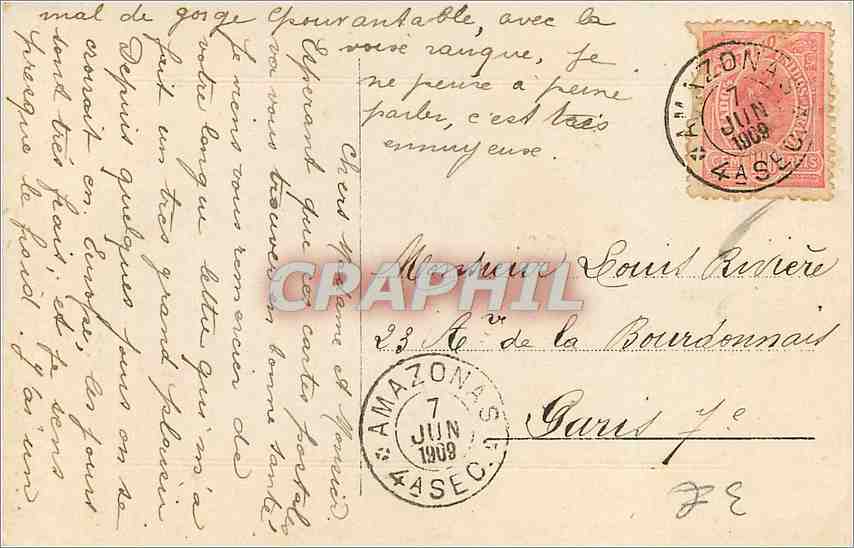 Chers Madame et Monsieur
Esperant que ces cartes postales
va vous trouver en bonne santé
je viens vous remercier de
votre longue lettre qui m'a
fait un tres grand plaisir
Depuis quelques jours on se
croirait en Europe, les jours
sont trés frais, et je sens
presque le froid. J'ai un
mal de gorge epouvantable, avec la
voix rauque, je
ne peux à peine
parler, c'est trés
ennuyeux.
AMAZONAS
7
JUN
1909
4A SEC.
Monsieur Louis Rivière
23 Av. de la Bourdonnais
Paris 7e
AMAZONAS
7
JUN
1909
4A SEC.
CRAPHIL